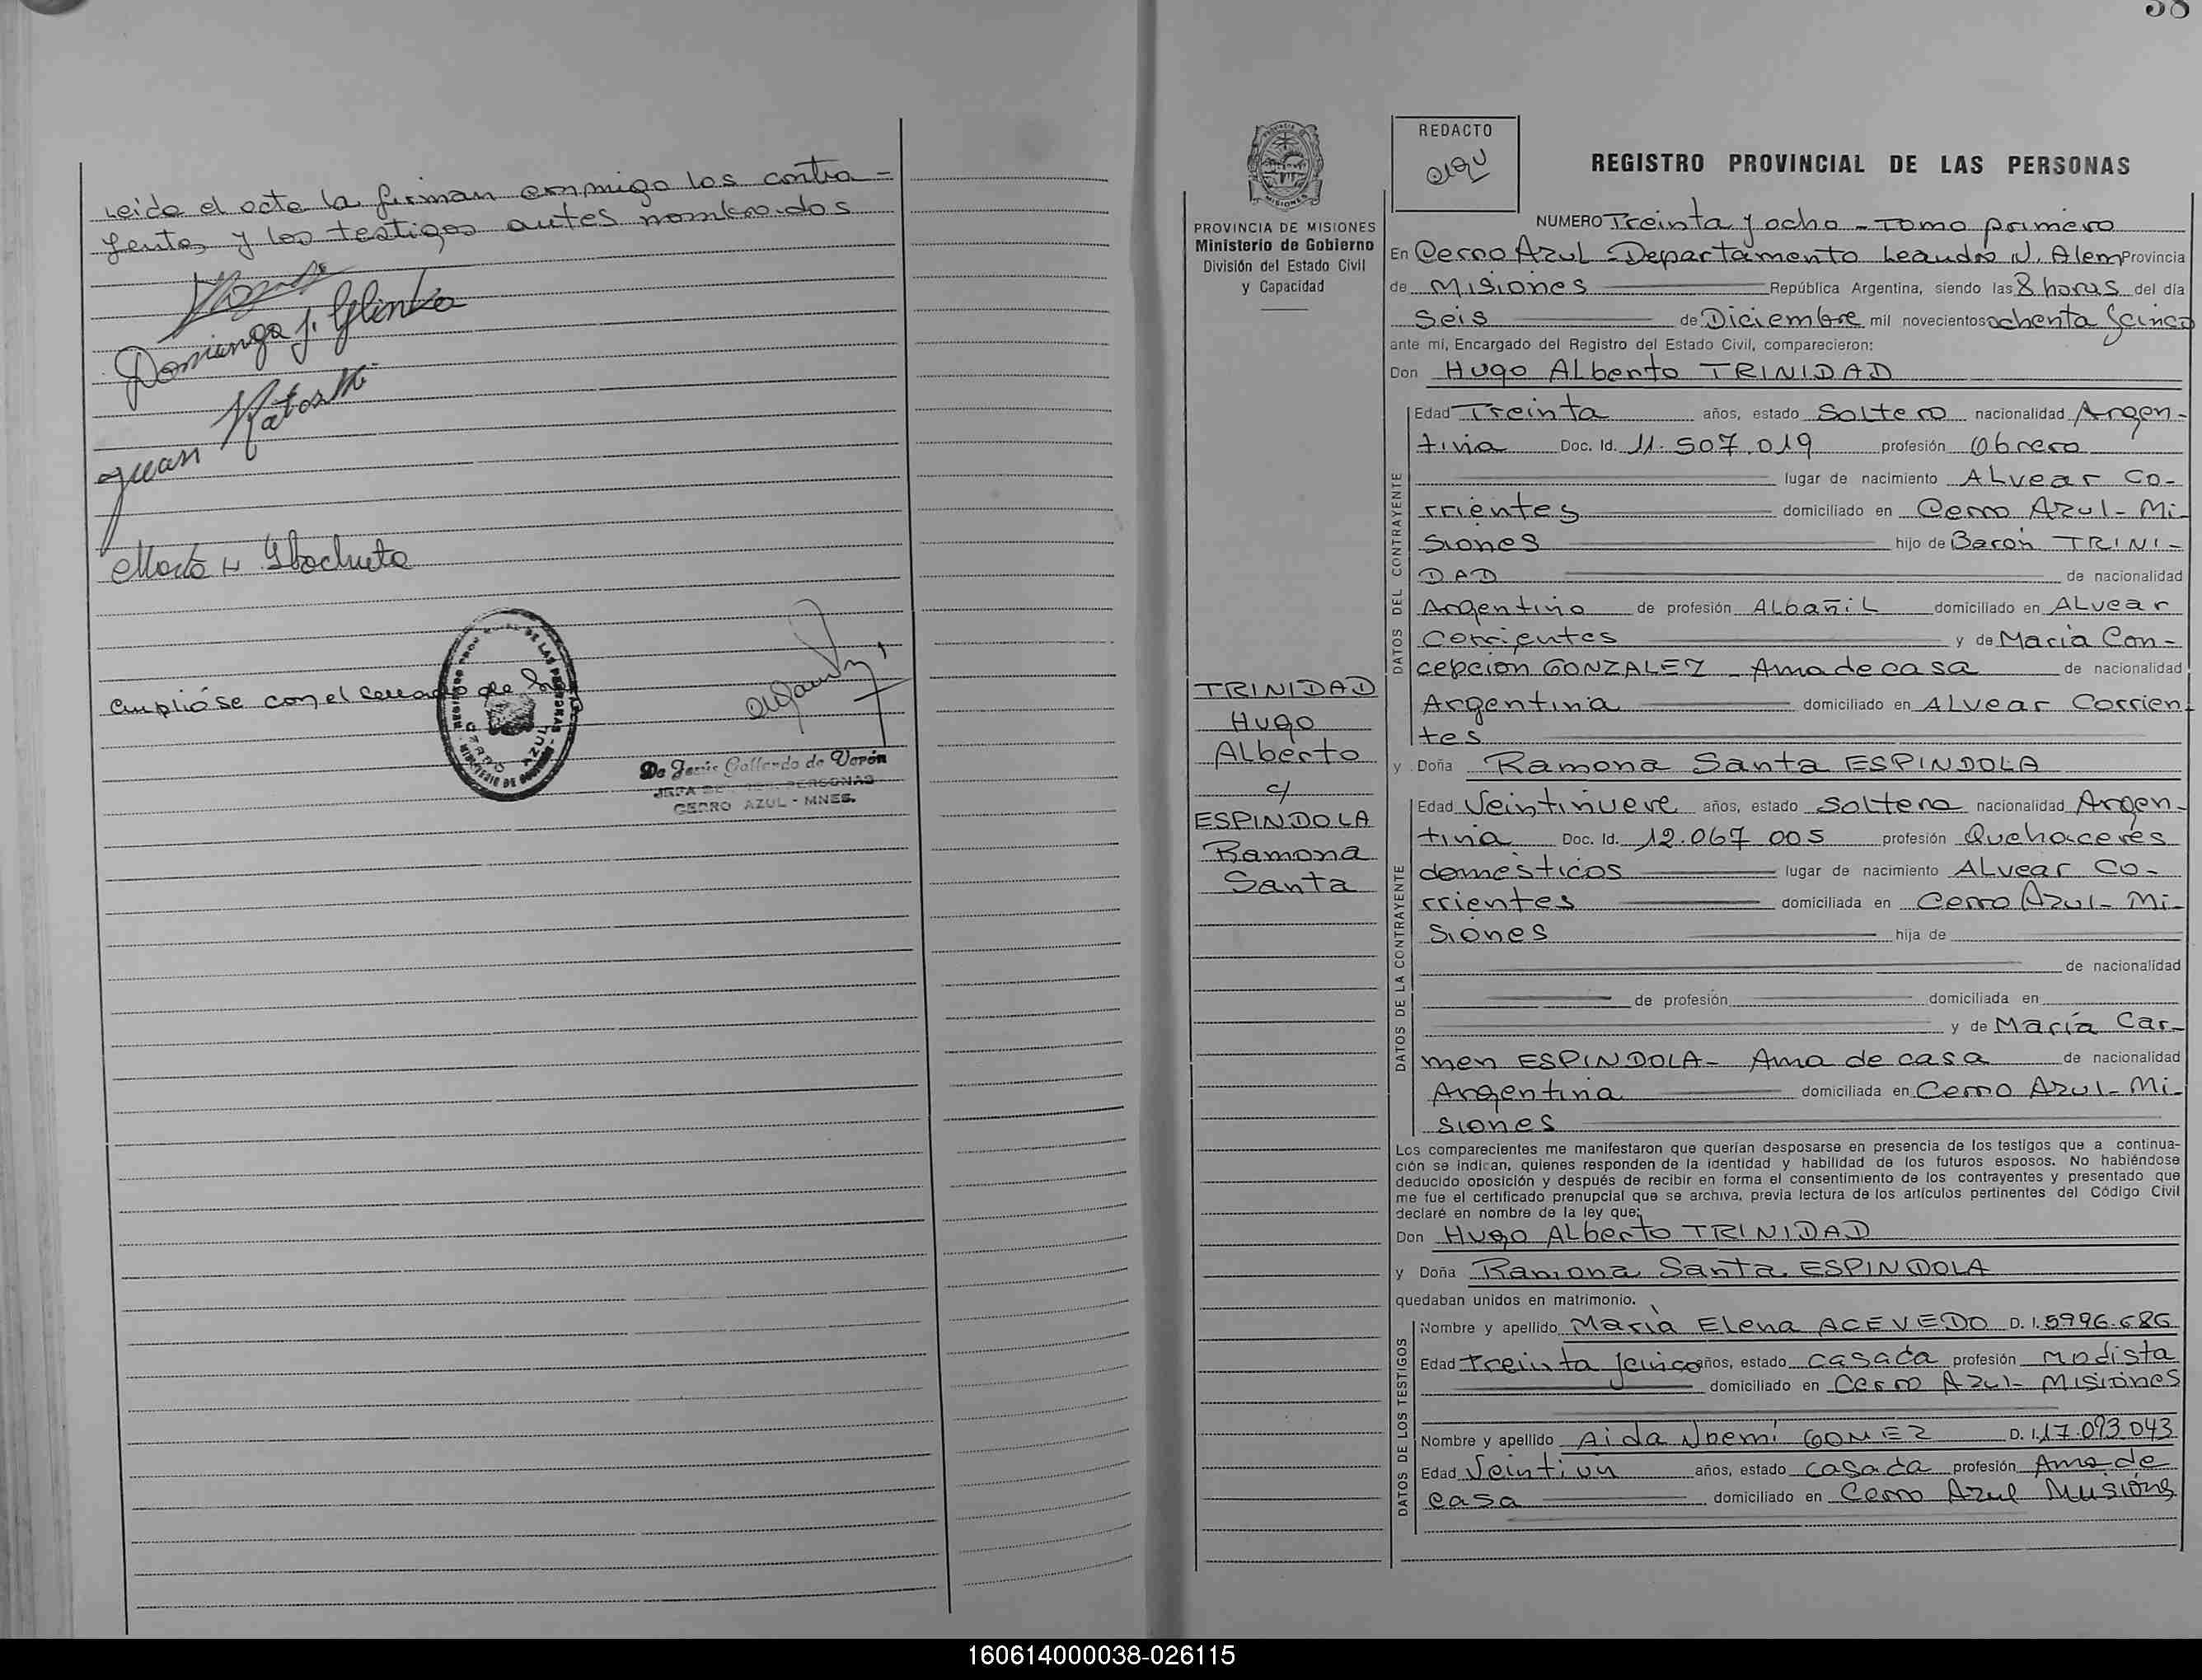 Leida el acta la firman conmigo los contra-
yentes y los testigos antes nombrados
Domingo J. Glinka
Juan
Cumplióse con el
CERRO AZUL
De Jesús Gallardo de Verón
JEFA PERSONAS
CERRO AZUL - MNES.
38
PROVINCIA DE MISIONES
Ministerio de Gobierno
División del Estado Civil
y Capacidad
TRINIDAD
Hugo
Alberto
c/
ESPINDOLA
Ramona
Santa
REDACTO
REGISTRO PROVINCIAL DE LAS PERSONAS
NUMERO Treinta y ocho - Tomo primero
En Cerro Azul - Departamento Leandro N. Alem Provincia
de Misiones República Argentina, siendo las 8 horas del día
Seis de Diciembre mil novecientos ochenta y cinco
ante mí, Encargado del Registro del Estado Civil, comparecieron:
Don Hugo Alberto TRINIDAD
DATOS DEL CONTRAYENTE
Edad Treinta años, estado Soltero nacionalidad Argen-
tina Doc. Id. 11.507.019 profesión Obrero
lugar de nacimiento Alvear Co-
rrientes domiciliado en Cerro Azul - Mi-
siones hijo de Barón TRINI-
DAD de nacionalidad
Argentino de profesión Albañil domiciliado en Alvear
Corrientes y de María Con-
cepción GONZALEZ - Ama de casa de nacionalidad
Argentina domiciliado en Alvear Corrien-
tes
y Doña Ramona Santa ESPINDOLA
DATOS DE LA CONTRAYENTE
Edad Veintinueve años, estado Soltera nacionalidad Argen-
tina Doc. Id. 12.067.005 profesión Quehaceres
domésticos lugar de nacimiento Alvear Co-
rrientes domiciliada en Cerro Azul - Mi-
siones hija de
de nacionalidad
de profesión domiciliada en
y de María Car-
men ESPINDOLA - Ama de casa de nacionalidad
Argentina domiciliada en Cerro Azul - Mi-
siones
Los comparecientes me manifestaron que querían desposarse en presencia de los testigos que a continua-
ción se indican, quienes responden de la identidad y habilidad de los futuros esposos. No habiéndose
deducido oposición y después de recibir en forma el consentimiento de los contrayentes y presentado que
me fue el certificado prenupcial que se archiva, previa lectura de los artículos pertinentes del Código Civil
declaré en nombre de la ley que:
Don Hugo Alberto TRINIDAD
y Doña Ramona Santa ESPINDOLA
quedaban unidos en matrimonio.
DATOS DE LOS TESTIGOS
Nombre y apellido María Elena ACEVEDO D. I. 5996.686
Edad Treinta y cinco años, estado casada profesión Modista
domiciliado en Cerro Azul - Misiones
Nombre y apellido Aida Noemí GOMEZ D. I. 17.093.043
Edad Veintiun años, estado casada profesión Ama de
casa domiciliado en Cerro Azul Misiones
160614000038-026115